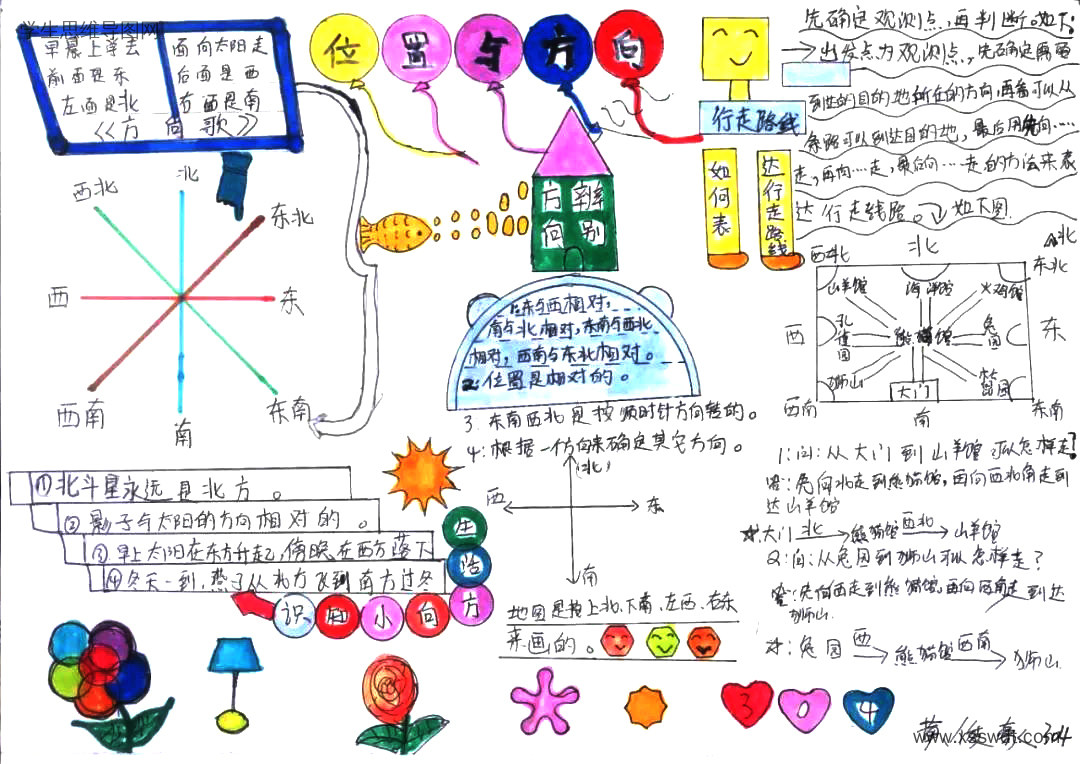 学生思维导图网
早晨上学去
面向太阳走
前面是东
后面是西
左面是北
右面是南
《方向歌》
位置与方向
行走路线
如何表
达行走路线
先确定观测点，再判断。如下:
出发点为观测点，先确定需要
到达的目的地所在的方向，再看可以从
条路可以到达目的地，最后用先向……
走，再向…走，最后向…走的方法来表
达行走线路。如下图.
北
西北
东北
西
东
西南
东南
南
辨别
方向
1:东与西相对，
南与北相对，东南与西北
相对，西南与东北相对。
2:位置是相对的。
3.东南西北是按顺时针方向转的。
4:根据一个方向来确定其它方向。
(北)
西
东
南
北
西北
北
东北
山羊馆
海洋馆
火鸡馆
西
孔雀园
熊猫馆
兔园
东
狮山
大门
西南
南
东南
①北斗星永远是北方。
②影子与太阳的方向相对的。
③早上太阳在东方升起，傍晚在西方落下
④冬天一到，燕子从北方飞到南方过冬
生活
方向小知识
地图是按上北、下南、左西、右东
来画的。
1:问:从大门到山羊馆可以怎样走?
答:先向北走到熊猫馆，再向西北角走到
达山羊馆
大门 北 熊猫馆 西北 山羊馆
2:问:从兔园到狮山可以怎样走?
答:先向西走到熊猫馆，再向西南走到达
狮山.
兔园 西 熊猫馆 西南 狮山
304
304